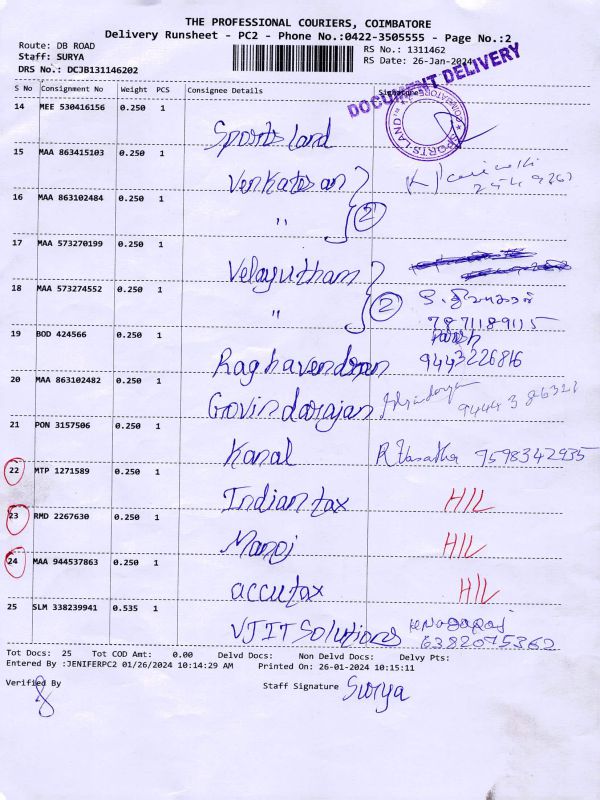 THE PROFESSIONAL COURIERS, COIMBATORE
Delivery Runsheet - PC2 - Phone No.:0422-3505555 - Page No.:2
Route: DB ROAD RS No.: 1311462
Staff: SURYA RS Date: 26-Jan-2024
DRS No.: DCJB131146202
DOCUMENT DELIVERY
S No Consignment No Weight PCS Consignee Details Signature
14 MEE 530416156 0.250 1
Sports land
SPORTS-LAND
COIMBATORE
15 MAA 863415103 0.250 1
Venkatesan
16 MAA 863102484 0.250 1
" 2
17 MAA 573270199 0.250 1
Velayutham
18 MAA 573274552 0.250 1
" 2
7871189115
19 BOD 424566 0.250 1
Raghavendran 9443226816
20 MAA 863102482 0.250 1
Govindarajan
21 PON 3157506 0.250 1
Kanal R Vasantha 9598342935
22 MTP 1271589 0.250 1
Indian tax H/L
23 RMD 2267630 0.250 1
Manoj H/L
24 MAA 944537863 0.250 1
accutax H/L
25 SLM 338239941 0.535 1
VJIT Solutions 6382075362
Tot Docs: 25 Tot COD Amt: 0.00 Delvd Docs: Non Delvd Docs: Delvy Pts:
Entered By :JENIFERPC2 01/26/2024 10:14:29 AM Printed On: 26-01-2024 10:15:11
Verified By Staff Signature Surya